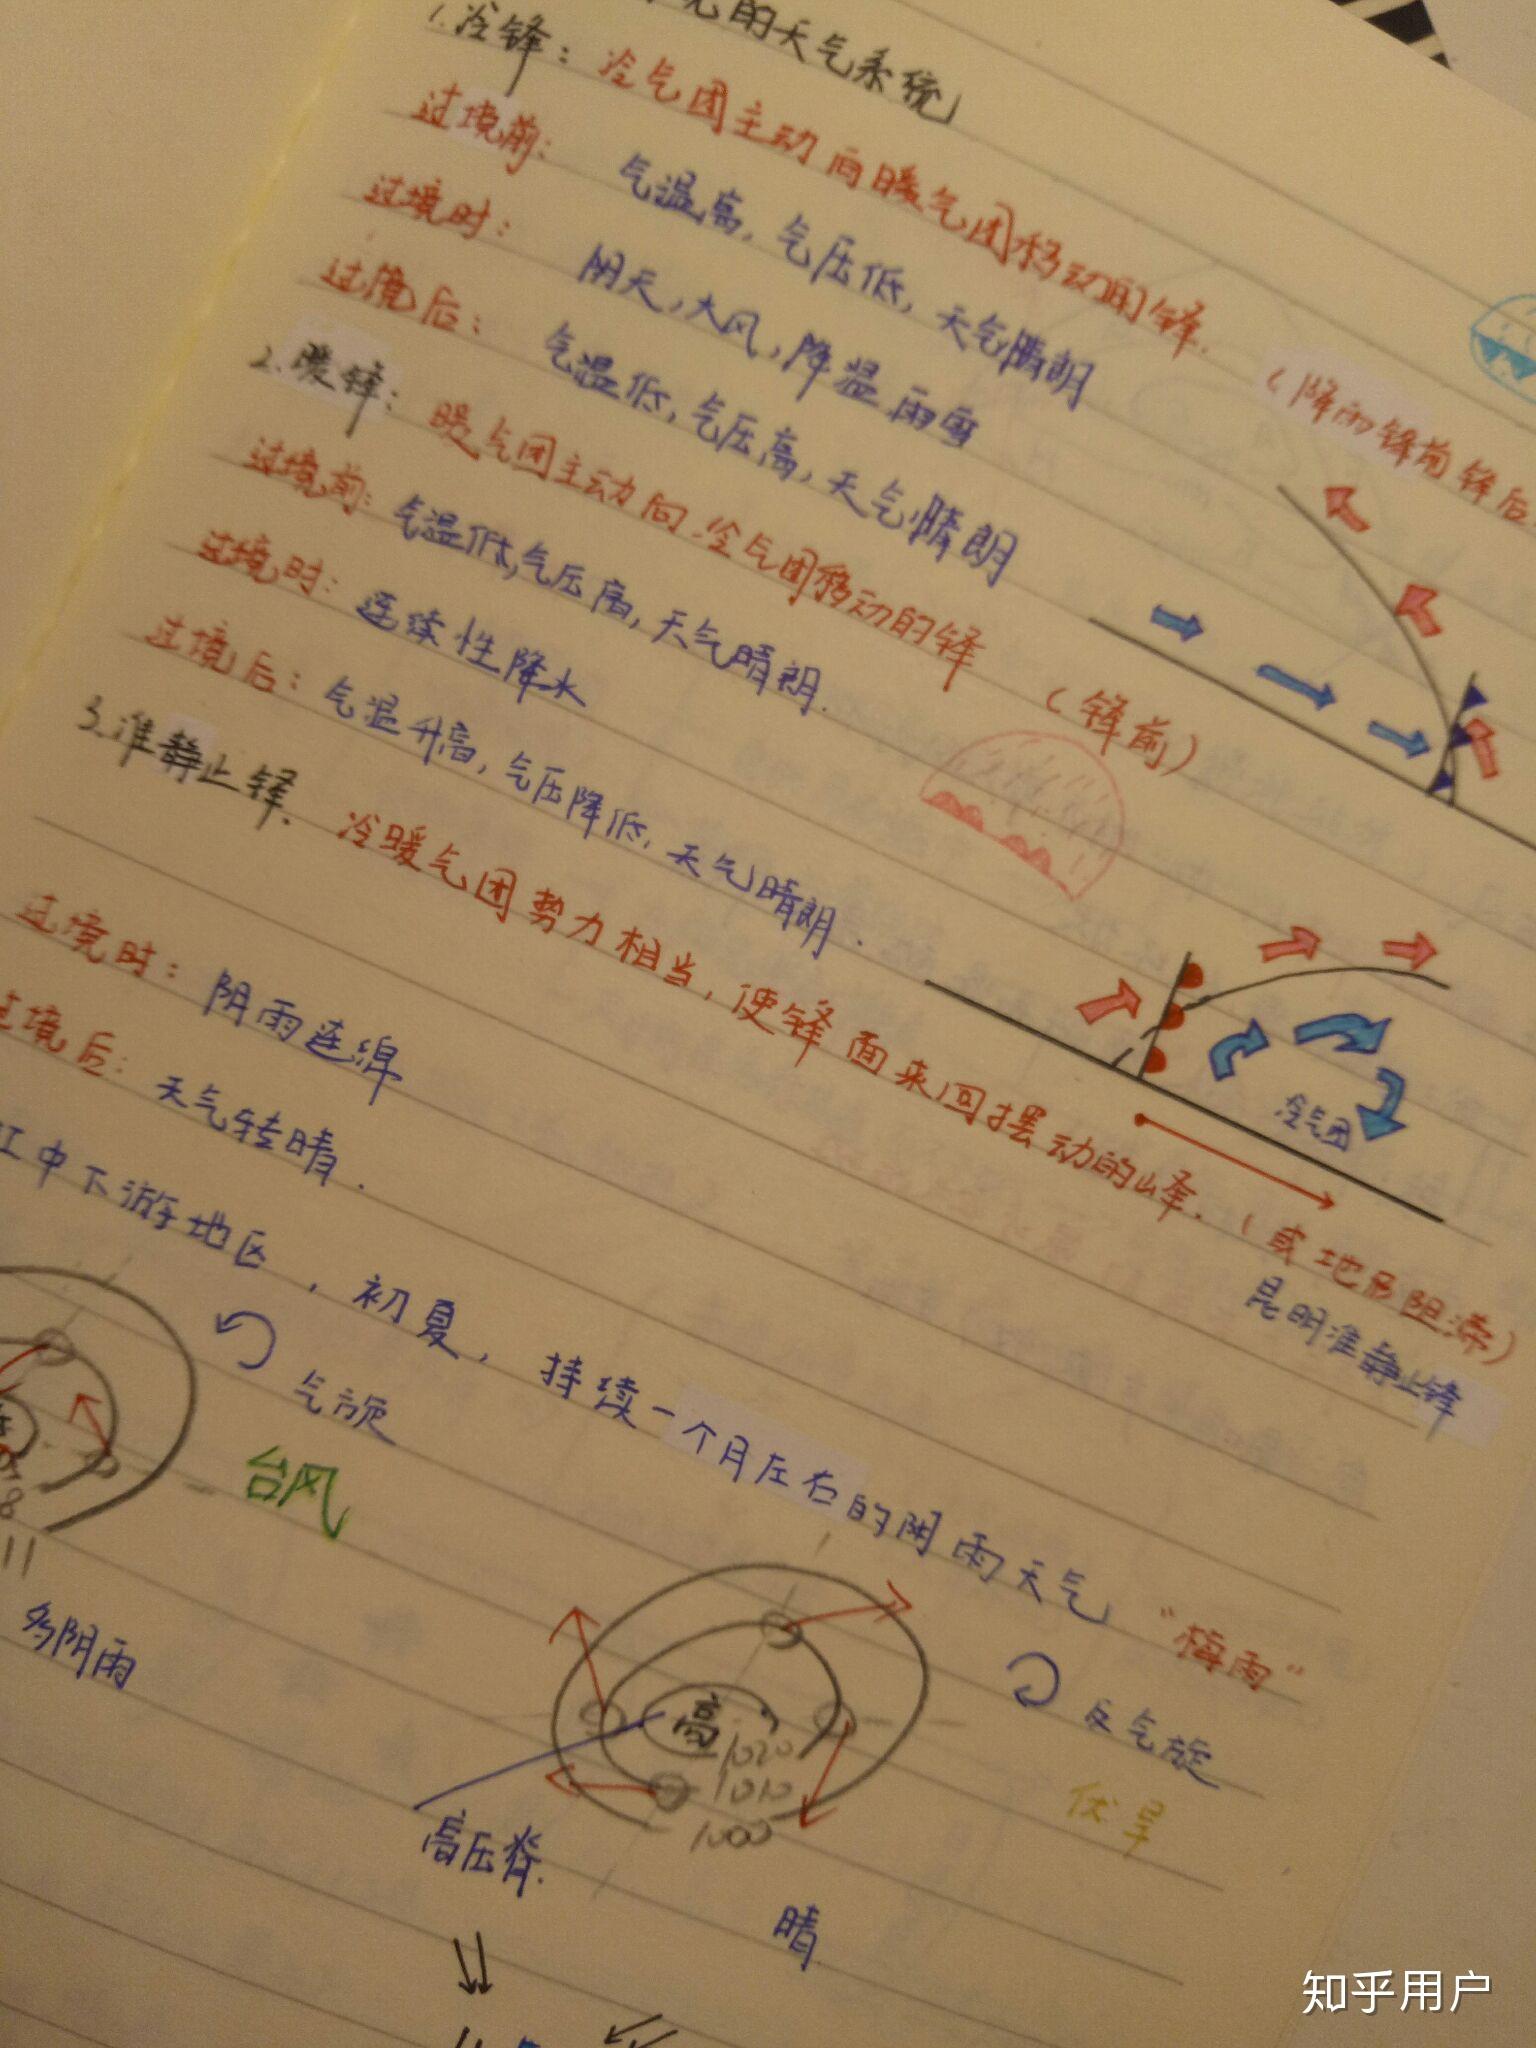 见的天气系统
1.冷锋：冷气团主动向暖气团移动的锋.（降雨锋前锋后
过境前：气温高，气压低，天气晴朗
过境时：阴天，大风，降温 雨雪
过境后：气温低，气压高，天气晴朗
2.暖锋：暖气团主动向冷气团移动的锋（锋前）
过境前：气温低，气压高，天气晴朗.
过境时：连续性降水
过境后：气温升高，气压降低，天气晴朗.
冷气团
3.准静止锋. 冷暖气团势力相当，使锋面来回摆动的峰.（或地形阻滞）
昆明准静止锋
过境时：阴雨连绵
过境后：天气转晴.
江中下游地区，初夏，持续一个月左右的阴雨天气“梅雨”
气旋
台风
11
多阴雨
高
1020
1010
1000
反气旋
伏旱
高压脊.
晴
知乎用户